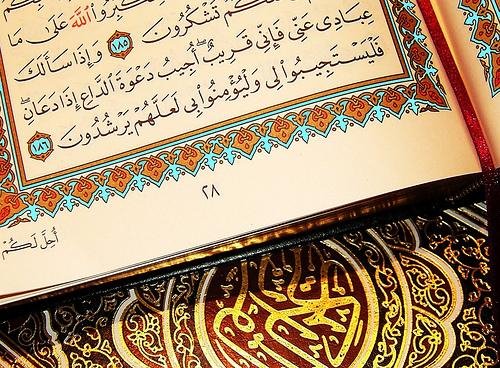 تَشْكُرُونَ ١٨٥ وَإِذَا سَأَلَكَ
عِبَادِى عَنِّى فَإِنِّى قَرِيبٌ أُجِيبُ دَعْوَةَ ٱلدَّاعِ إِذَا دَعَانِ
فَلْيَسْتَجِيبُوا۟ لِى وَلْيُؤْمِنُوا۟ بِى لَعَلَّهُمْ يَرْشُدُونَ ١٨٦
٢٨
أُحِلَّ لَكُمْ